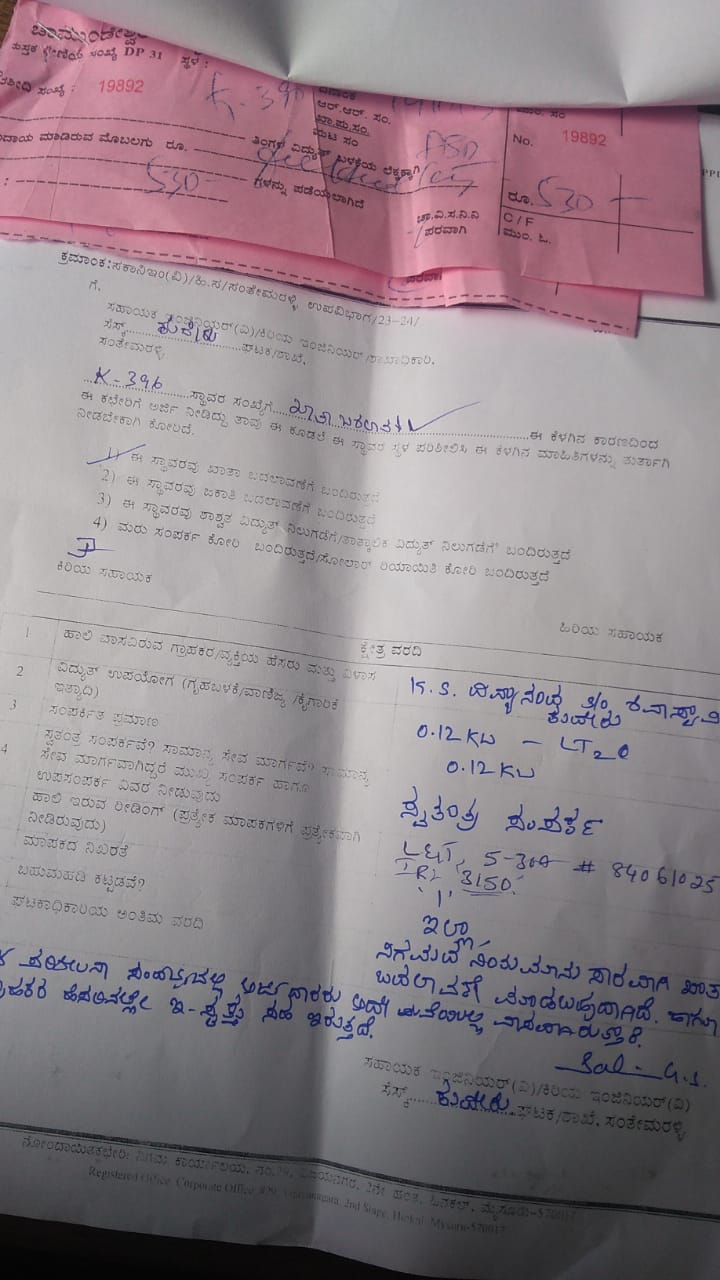 ಚಾಮುಂಡೇಶ್ವ
ಪುಸ್ತಕ ಶ್ರೇಣಿಯ ಸಂಖ್ಯೆ DP 31 ಸ್ಥಳ :
ರಶೀದಿ ಸಂಖ್ಯೆ : 19892
K-396
ಆರ್.ಆರ್. ಸಂ.
ಪುಟ ಸಂ
No. 19892
ASD
ಮಾಡಿರುವ ಮೊಬಲಗು ರೂ. ತಿಂಗಳ ವಿದ್ಯುತ್ ಬಳಕೆಯ ಲೆಕ್ಕಕ್ಕಾಗಿ
: 530 ಗಳನ್ನು ಪಡೆಯಲಾಗಿದೆ
ರೂ. 530 —
ಚಾ.ವಿ.ಸ.ನಿ.ನಿ
ಪರವಾಗಿ
C/F
ಮುಂ. ಓ.
ಕ್ರಮಾಂಕ:ಸಕಾನಿಇಂ(ವಿ)/ಹಿ.ಸ/ಸಂತೇಮರಳ್ಳಿ ಉಪವಿಭಾಗ/23-24/
ಗೆ.
ಸಹಾಯಕ ಇಂಜಿನಿಯರ್(ವಿ)/ಕಿರಿಯ ಇಂಜಿನಿಯರ್/ಶಾಖಾಧಿಕಾರಿ,
ಸೆಸ್ಕ್ ಕುದೇರು ಘಟಕ/ಶಾಖೆ,
ಸಂತೇಮರಳ್ಳಿ
K-396 ಸ್ಥಾವರ ಸಂಖ್ಯೆಗೆ ಖಾತಾ ಬದಲಾವಣೆ ಈ ಕೆಳಗಿನ ಕಾರಣದಿಂದ
ಈ ಕಛೇರಿಗೆ ಅರ್ಜಿ ನೀಡಿದ್ದು ತಾವು ಈ ಕೂಡಲೆ ಈ ಸ್ಥಾವರ ಸ್ಥಳ ಪರಿಶೀಲಿಸಿ ಈ ಕೆಳಗಿನ ಮಾಹಿತಿಗಳನ್ನು ತುರ್ತಾಗಿ
ನೀಡಬೇಕಾಗಿ ಕೋರಿದೆ.
1) ಈ ಸ್ಥಾವರವು ಖಾತಾ ಬದಲಾವಣೆಗೆ ಬಂದಿರುತ್ತದೆ
2) ಈ ಸ್ಥಾವರವು ಜಕಾತಿ ಬದಲಾವಣೆಗೆ ಬಂದಿರುತ್ತದೆ
3) ಈ ಸ್ಥಾವರವು ಶಾಶ್ವತ ವಿದ್ಯುತ್ ನಿಲುಗಡೆಗೆ/ತಾತ್ಕಾಲಿಕ ವಿದ್ಯುತ್ ನಿಲುಗಡೆಗೆ ಬಂದಿರುತ್ತದೆ
4) ಮರು ಸಂಪರ್ಕ ಕೋರಿ ಬಂದಿರುತ್ತದೆ/ಸೋಲಾರ್ ರಿಯಾಯಿತಿ ಕೋರಿ ಬಂದಿರುತ್ತದೆ
ಕಿರಿಯ ಸಹಾಯಕ
ಹಿರಿಯ ಸಹಾಯಕ
ಕ್ಷೇತ್ರ ವರದಿ
1 ಹಾಲಿ ವಾಸವಿರುವ ಗ್ರಾಹಕರ/ವ್ಯಕ್ತಿಯ ಹೆಸರು ಮತ್ತು ವಿಳಾಸ
K.S. ವಿದ್ಯಾನಂದ
ಕುದೇರು
2 ವಿದ್ಯುತ್ ಉಪಯೋಗ (ಗೃಹಬಳಕೆ/ವಾಣಿಜ್ಯ /ಕೈಗಾರಿಕೆ
ಇತ್ಯಾದಿ)
0.12KW — LT2
3 ಸಂಪರ್ಕಿತ ಪ್ರಮಾಣ
0.12KW
4 ಸ್ವತಂತ್ರ ಸಂಪರ್ಕವೆ? ಸಾಮಾನ್ಯ ಸೇವ ಮಾರ್ಗವೆ? ಸಾಮಾನ್ಯ
ಸೇವ ಮಾರ್ಗವಾಗಿದ್ದರೆ ಮುಖ್ಯ ಸಂಪರ್ಕ ಹಾಗೂ
ಉಪಸಂಪರ್ಕ ವಿವರ ನೀಡುವುದು
ಸ್ವತಂತ್ರ ಸಂಪರ್ಕ
ಹಾಲಿ ಇರುವ ರೀಡಿಂಗ್ (ಪ್ರತ್ಯೇಕ ಮಾಪಕಗಳಿಗೆ ಪ್ರತ್ಯೇಕವಾಗಿ
ನೀಡಿರುವುದು)
L&T, 5-30A # 84061025
3150
ಮಾಪಕದ ನಿಖರತೆ
ಬಹುಮಹಡಿ ಕಟ್ಟಡವೆ?
ಇಲ್ಲಾ
ಘಟಕಾಧಿಕಾರಿಯ ಅಂತಿಮ ವರದಿ
ನಿಗಮದ ನಿಯಮಾನುಸಾರವಾಗಿ ಖಾತ
ಬದಲಾವಣೆ ಮಾಡಬಹುದಾಗಿದೆ. ಹಾಗೂ
ಪರಿಶೀಲನಾ ಸಂದರ್ಭದಲ್ಲಿ ಅರ್ಜಿದಾರರು ಅದೇ ಮನೆಯಲ್ಲಿ ವಾಸವಾಗಿರುತ್ತಾರೆ.
ಹೆಸರಿನಲ್ಲೇ ಇ-ಸ್ವತ್ತು ಸಹ ಇರುತ್ತದೆ.
ಸಹಾಯಕ ಇಂಜಿನಿಯರ್(ವಿ)/ಕಿರಿಯ ಇಂಜಿನಿಯರ್(ವಿ)
ಸೆಸ್ಕ್ ಕುದೇರು ಘಟಕ/ಶಾಖೆ, ಸಂತೇಮರಳ್ಳಿ
ನೋಂದಾಯಿತಕಛೇರಿ: ನಿಗಮ ಕಾರ್ಯಾಲಯ, ನಂ.29, ವಿಜಯನಗರ, 2ನೇ ಹಂತ, ಹಿನಕಲ್, ಮೈಸೂರು-570017
Registered Office: Corporate Office, #29, Vijayanagara, 2nd Stage, Hinkal, Mysuru-570017